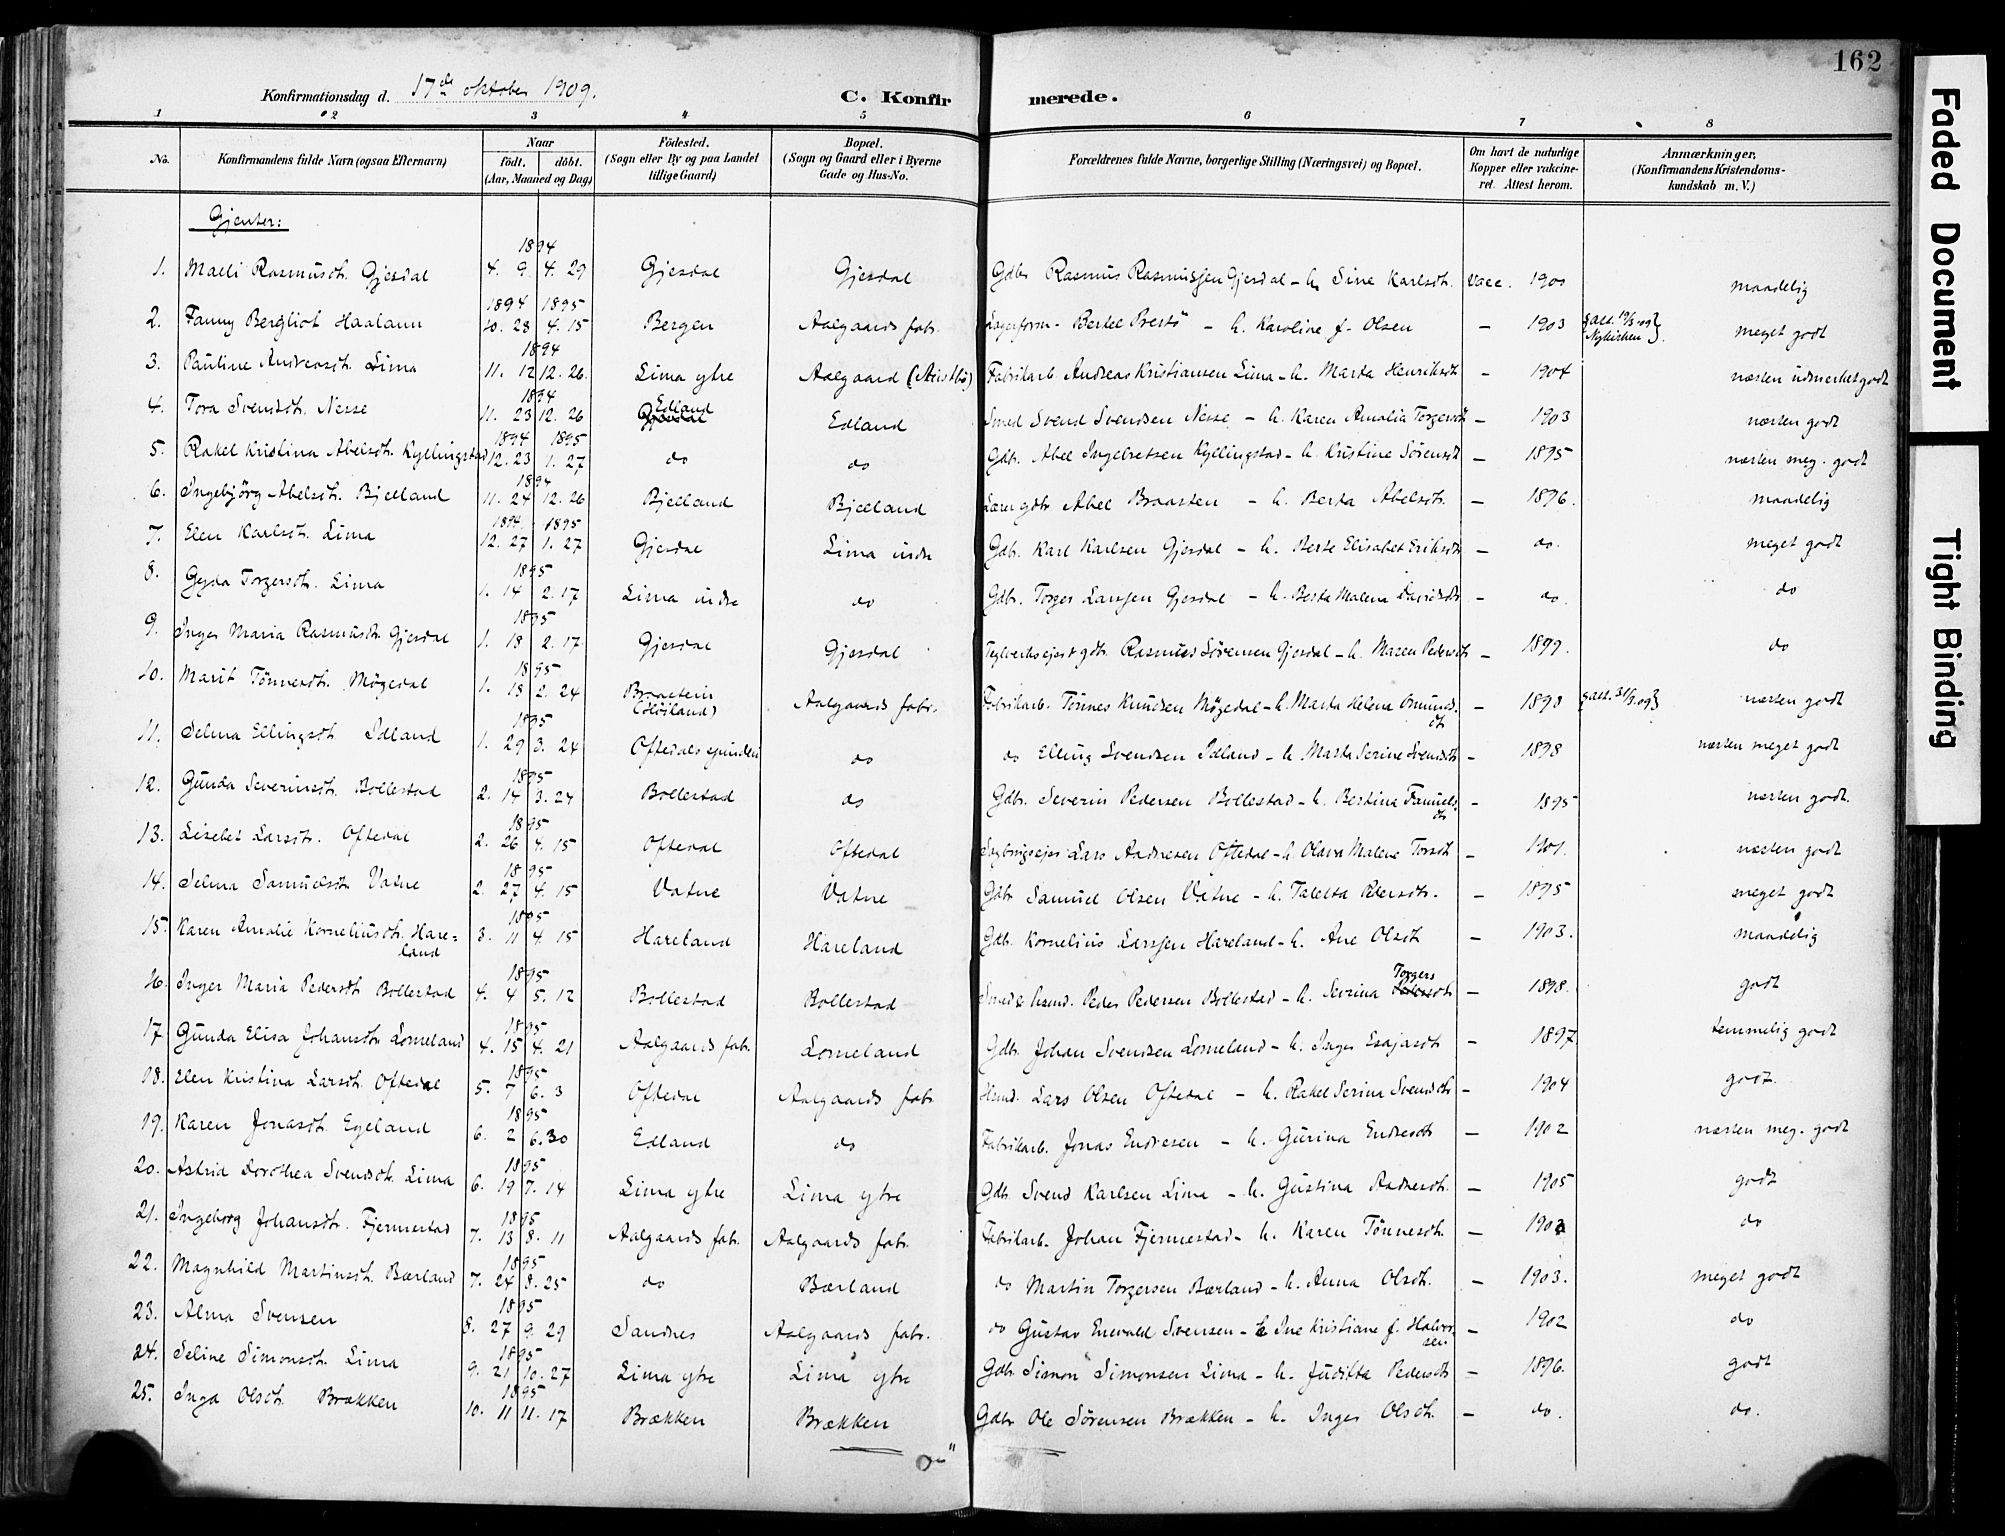 162
Konfirmationsdag d. 17de oktober 1909.
C. Konfirmerede.
1 2 3 4 5 6 7 8
No. Konfirmandens fulde Navn (ogsaa Efternavn) Naar født, døbt. (Aar, Maaned og Dag) Fødested. (Sogn eller By og paa Landet tillige Gaard) Bopæl. (Sogn og Gaard eller i Byerne Gade og Hus-No. Forældrenes fulde Navne, borgerlige Stilling (Næringsvei) og Bopæl. Om havt de naturlige Kopper eller vakcineret. Attest herom. Anmærkninger, (Konfirmandens Kristendomskundskab m. V.)
Gjenter:
1. Malli Rasmusdt. Gjesdal 1894 4. 9. 4. 29 Gjesdal Gjesdal Gdbr Rasmus Rasmussen Gjesdal - h. Sine Karlsdt. vacc. 1900 maadelig
2. Fanny Bergliot Haaland 1894 10. 28 1895 4. 15 Bergen Aalgaards fabr. Bertel Brestö - h. Karoline f. Olsen - 1903 att. 19/3.09 Nykirken meget godt
3. Pauline Andreasdt. Lima 1894 11. 12 12. 26. Lima ytre Aalgaard Fabrikarb. Andreas Kristiansen Lima - h. Marta Henriksdt - 1904 næsten udmerket godt
4. Tora Svendsdt. Nesse 1894 11. 23 12. 26 Edland Gjesdal Edland Smed Svend Svendsen Nesse - h. Karen Amalia Torgersdt - 1903 næsten godt
5. Rakel Kristina Abelsdt. Kyllingstad 1894 12. 23 1895 1. 27 do do Gdbr. Abel Ingebretsen Kyllingstad - h. Kristine Sörensdt - 1895 næsten meg. godt
6. Ingebjörg Abelsdt. Bjelland 1894 11. 24 12. 26 Bjelland Bjelland Abel Braasten - h. Berta Abelsdt. - 1896. maadelig
7. Elen Karlsdt. Lima 1894. 12. 27 1895 1. 27 Gjesdal Lima indre Gdb. Karl Karlsen Gjesdal - h. Berte Elisabet Eriksdt - do. meget godt
8. Gyda Torgersdt. Lima 1895 1. 14 2. 17 Lima indre do Gdbr. Torger Larssen Gjesdal - h. Berta Malena Davidsdt - do. do
9. Inger Maria Rasmusdt Gjesdal 1895 1. 18 2. 17. Gjesdal Gjesdal Teglverksejer & gdbr. Rasmus Sörensen Gjesdal - h. Maren Pedersdt - 1899. do
10. Marit Tönnesdt. Mögedal 1895 1. 18 2. 24 Braastein (Höiland) Aalgaards fabr. Fabrikarb. Tönnes Knudsen Mögedal - h. Marta Helena Omundsdt - 1898 att. 31/3.09 næsten godt
11. Selma Ellingsdt Idland 1895 1. 29 3. 24 do do Elling Svendsen Idland - h. Marta Serine Svendsdt - 1898 næsten meget godt
12. Gunda Severinsdt. Bollestad 1895 2. 14 3. 24 Bollestad do Gdbr. Severin Pedersen Bollestad - h. Bertina - 1895 næsten godt.
13. Lisebet Larsdt. Oftedal 1895 2. 26 4. 15 Oftedal Oftedal Lars Aadnesen Oftedal - h. Olava Malene Torsdt - 1901. næsten godt
14. Selma Samuelsdt Vatne 1895 2. 27 4. 15 Vatne Vatne Gdbr Samuel Olsen Vatne - h. Taletta Pedersdt. - 1895 meget godt
15. Karen Amalie Korneliusdt. Hareland 1895 3. 11 4. 15 Hareland Hareland Gdb. Kornelius Larssen Hareland - h. Ane Olsdt - 1903. maadelig
16. Inger Maria Pedersdt Bollestad 1895 4. 4 5. 12 Bollestad Bollestad Smed & husmd. Peder Pedersen Bollestad - h. Serina Torgers Pedersdt - 1898. godt
17 Gunda Elisa Johansdt Lomeland 1895 4. 15 4. 21 Aalgaards fabr. Lomeland Gdbr. Johan Svendsen Lomeland - h. Inger Esajasdt - 1897 temmelig godt
18. Elen Kristina Larsdt. Oftedal 1895 5. 7 6. 3 Oftedal Aalgaards fabr Husmd. Lars Olsen Oftedal - h. Rakel Serina Svendsdt - 1904 godt.
19. Karen Jonasdt. Egeland 1895 6. 2 6. 30 Edland do Fabrikarb. Jonas Endresen - h. Gurina Endresdt - 1902 næsten meg. godt
20. Astrid Dorothea Svendsdt. Lima 1895 6. 19 7. 14 Lima ytre Lima ytre Gdb. Svend Karlsen Lima - h. Gustina Aadnesdt. - 1905 godt
21. Ingeborg Johansdt. Fjermestad 1895 7. 13 8. 11 Aalgaards fabr. Aalgaards fabr. Fabrikarb. Johan Fjermestad - h. Karen Tönnesdt. - do
22. Magnhild Martinsdt. Bærland 1895 7. 24 8. 25 do Bærland do Martin Torgersen Bærland - h. Anna Olsdt. - 1903. meget godt
23. Alma Svensen 1895 8. 27 9. 29 Sandnes Aalgaards fabr. do Gustav Enevald Svensen - h Ine Kristiane f. Halvorsen - 1902 do
24. Seline Simonsdt. Lima 1895 9. 21 10. 27 Lima ytre Lima ytre Gdbr. Simon Simonsen Lima - h. Juditta Pedersdt - 1896. godt
25. Inga Olsdt. Brækken 1895 10. 11 11. 17 Brækken Brækken Gdbr Ole Sörensen Brækken - h. Inger Olsdt. - do. do.
Faded Document
Tight Binding